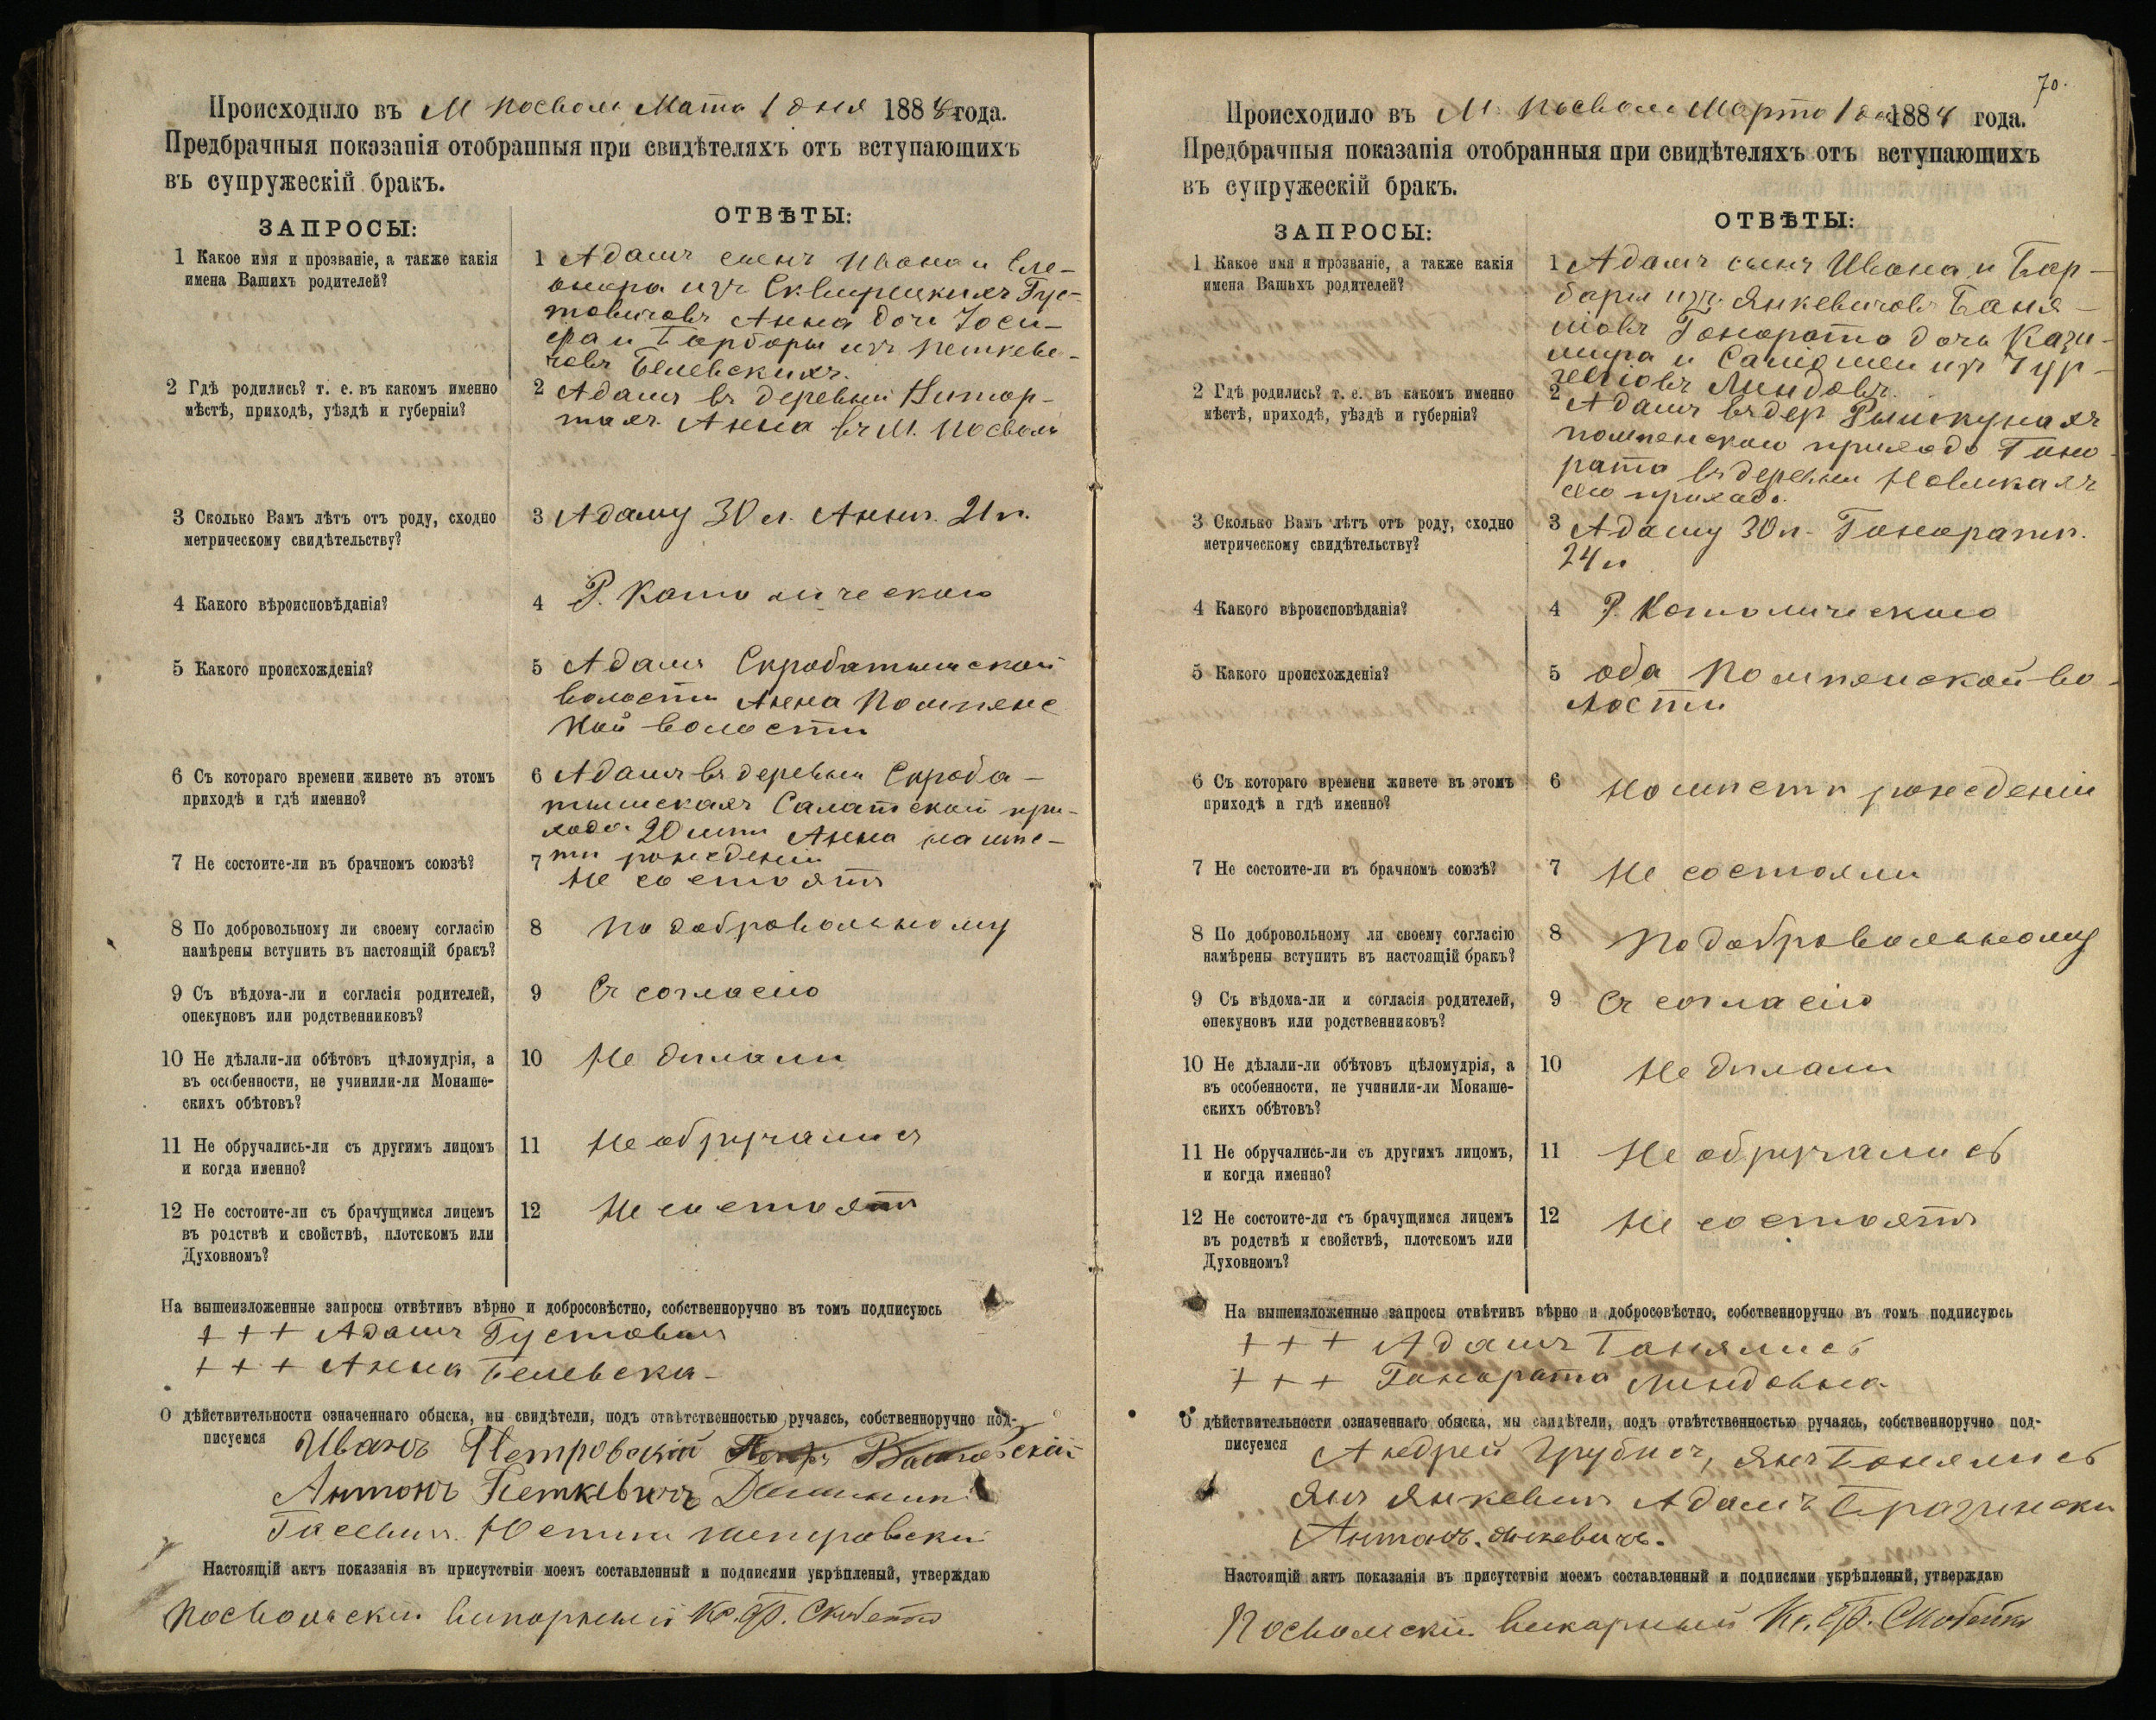 Происходило въ М Посволи Мата 1 дня 1884 года.
Предбрачныя показанія отобранныя при свидѣтеляхъ отъ вступающихъ
въ супружескій бракъ.
ЗАПРОСЫ:
ОТВѢТЫ:
1 Какое имя и прозваніе, а также какія
имена Вашихъ родителей?
1 Адамъ сынъ Ивана и Еле-
онора изъ Сквирецкихъ Гус-
товичовъ Анна дочь Іоси-
фа и Барборы изъ Петкеве-
човъ Белевскихъ.
2 Гдѣ родились? т. е. въ какомъ именно
мѣстѣ, приходѣ, уѣздѣ и губерніи?
2 Адамъ въ деревни
Анна въ М. Посволи
3 Сколько Вамъ лѣтъ отъ роду, сходно
метрическому свидѣтельству?
3 Адаму 30 л. Аннѣ. 21 л.
4 Какого вѣроисповѣданія?
4 Р. Католическаго
5 Какого происхожденія?
5 Адамъ Скробатишской
волости Анна Помпянс
кой волости
6 Съ котораго времени живете въ этомъ
приходѣ и гдѣ именно?
6 Адамъ въ деревни Скроба-
тишскахъ Салатской при-
хода 20 лѣтъ Анна на мѣс-
ти рожденіи
7 Не состоите-ли въ брачномъ союзѣ?
7 Не состоятъ
8 По добровольному ли своему согласію
намѣрены вступить въ настоящій бракъ?
8 По добровольному
9 Съ вѣдома-ли и согласія родителей,
опекуновъ или родственниковъ?
9 Съ согласію
10 Не дѣлали-ли обѣтовъ цѣломудрія, а
въ особенности, не учинили-ли Монаше-
скихъ обѣтовъ?
10 Не дѣлали
11 Не обручались-ли съ другимъ лицомъ
и когда именно?
11 Не обручались
12 Не состоите-ли съ брачущимся лицемъ
въ родствѣ и свойствѣ, плотскомъ или
Духовномъ?
12 Не состоятъ
На вышеизложенные запросы отвѣтивъ вѣрно и добросовѣстно, собственноручно въ томъ подписуюсь
+ + + Адамъ Густовичъ
+ + + Анна Белевска
О дѣйствительности означеннаго обыска, мы свидѣтели, подъ отвѣтственностью ручаясь, собственноручно под-
писуемся Иванъ Петровскій
Антонъ Петкевичъ
Юстин
Настоящій актъ показанія въ присутствіи моемъ составленный и подписями укрѣпленый, утверждаю
Посвольски викарный Кс. Ф.
70.
Происходило въ М. Посволи Марта 1 дня 1884 года.
Предбрачныя показанія отобранныя при свидѣтеляхъ отъ вступающихъ
въ супружескій бракъ.
ЗАПРОСЫ:
ОТВѢТЫ:
1 Какое имя и прозваніе, а также какія
имена Вашихъ родителей?
1 Адамъ сынъ Ивана и Бар-
бары изъ Янкевичовъ Баня-
лісовъ Гонората дочь Кази-
мира и Саломеи изъ
Линдовъ.
2 Гдѣ родились? т. е. въ какомъ именно
мѣстѣ, приходѣ, уѣздѣ и губерніи?
2 Адамъ въ дер Рышкунахъ
помпянскаго прихода Гоно-
рата въ деревни Новикахъ
сего прихода.
3 Сколько Вамъ лѣтъ отъ роду, сходно
метрическому свидѣтельству?
3 Адаму 30 л. Гоноратѣ.
24 л
4 Какого вѣроисповѣданія?
4 Р. Католическаго
5 Какого происхожденія?
5 оба Помпянской во-
лости
6 Съ котораго времени живете въ этомъ
приходѣ и гдѣ именно?
6 На мѣсти рожденіи
7 Не состоите-ли въ брачномъ союзѣ?
7 Не состояли
8 По добровольному ли своему согласію
намѣрены вступить въ настоящій бракъ?
8 По добровольному
9 Съ вѣдома-ли и согласія родителей,
опекуновъ или родственниковъ?
9 Съ согласію
10 Не дѣлали-ли обѣтовъ цѣломудрія, а
въ особенности, не учинили-ли Монаше-
скихъ обѣтовъ?
10 Не дѣлали
11 Не обручались-ли съ другимъ лицомъ,
и когда именно?
11 Не обручались
12 Не состоите-ли съ брачущимся лицемъ
въ родствѣ и свойствѣ, плотскомъ или
Духовномъ?
12 Не состоятъ
На вышеизложенные запросы отвѣтивъ вѣрно и добросовѣстно, собственноручно въ томъ подписуюсь
+ + + Адамъ Банялисъ
+ + + Гонората Линдовна
О дѣйствительности означеннаго обыска, мы свидѣтели, подъ отвѣтственностью ручаясь, собственноручно под-
писуемся Андрей Грубисъ, Янъ Банялисъ
Янъ Янкевичъ Адамъ Бразински
Антонъ. Янкевичъ.
Настоящій актъ показанія въ присутствіи моемъ составленный и подписями укрѣпленый, утверждаю
Посвольскій викарный Кс. Ф.